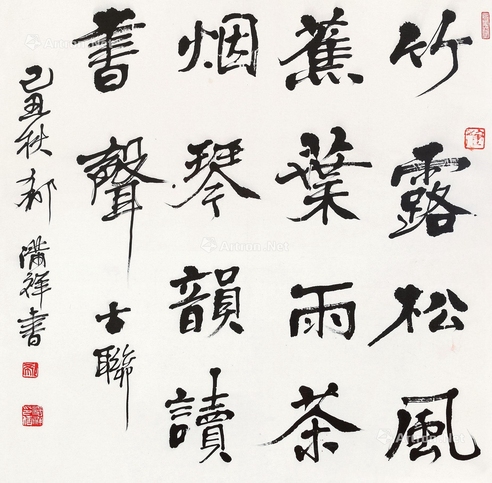 竹露松風
蕉葉雨茶
烟琴韻讀
書聲
古聯
己丑秋郝
滿祥書